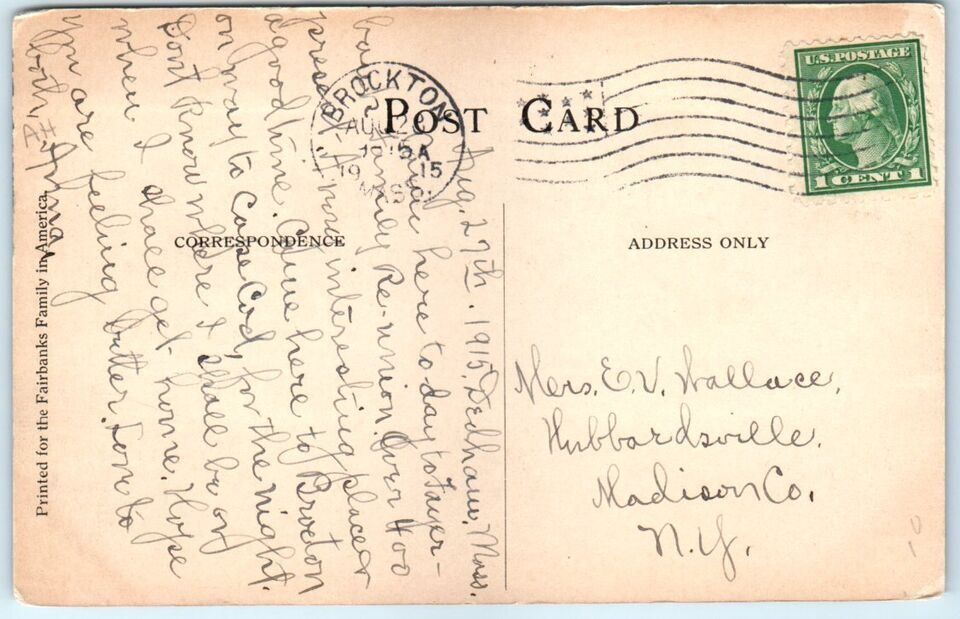 POST CARD
BROCKTON
AUG 2
1915
MASS.
U.S. POSTAGE
1 CENT 1
CORRESPONDENCE
ADDRESS ONLY
Printed for the Fairbanks Family in America,
Aug. 27th. 1915. Dedham. Mass.
here to day to Fayer-
banks Family Re-union. Over 400
present. A most interesting place &
a good time. Came here to Brocton
on way to Cape Cod, for the night.
Dont know where I shall be or
when I shall get home. Hope
you are feeling better. Love to
both.
Mrs. E. V. Wallace.
Hubbardsville.
Madison Co.
N.Y.